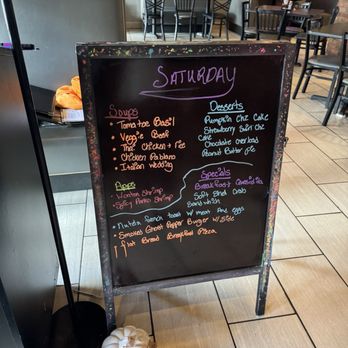 SATURDAY
Soups
• Tomatoe Basil
• Veggie Beef
• Thai Chicken + Rice
• Chicken Poblano
• Italian Wedding
Desserts
Pumpkin Chz Cake
Strawberry Swirl Chz
Cake
Chocolate Overload
Peanut Butter Pie
Apps
• Wonton Shrimp
• Spicy Panko Shrimp
Specials
Breakfast Quesadilla
Soft Shell Crab
Sandwich
• Nutella French toast w/ meat and eggs
• Smokes Ghost Pepper Burger w/ Side
• Flat Bread Breakfast Pizza